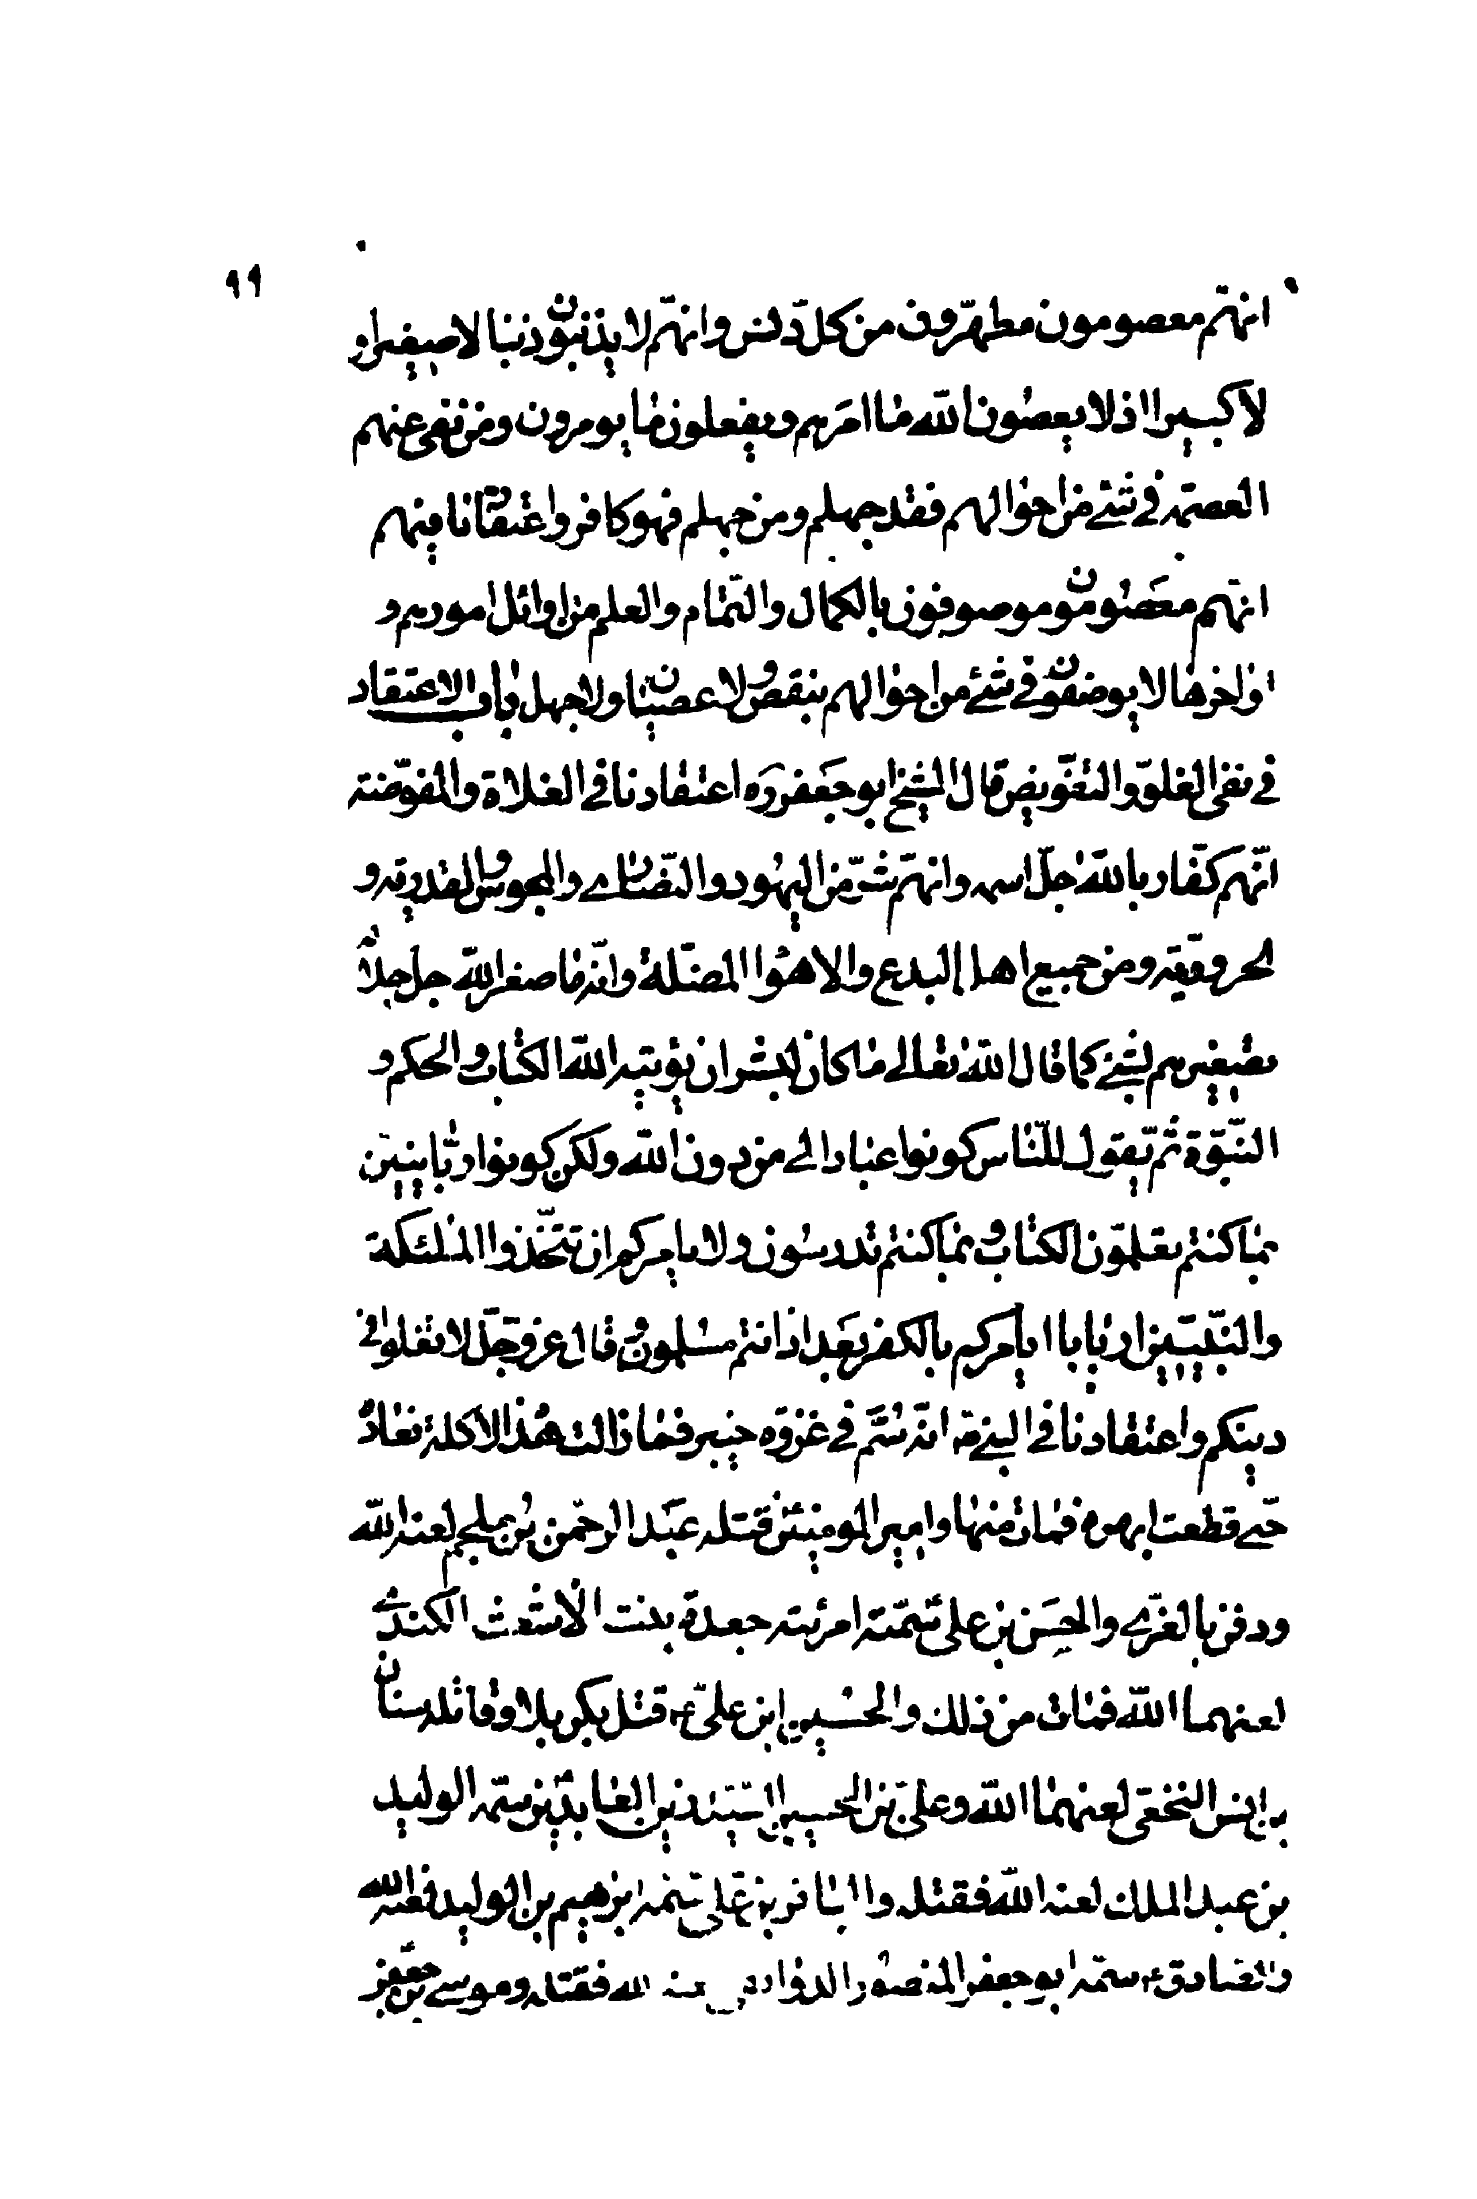 ٩٩
انهّم معصومون مطهّرون من كلّ دنس وانهّم لا يذنبون ذنبا لا صغيرا و
لا كبيرا اذ لا يعصون الله ما امرهم ويفعلون ما يومرون ومن نفى عنهم
العصمة في شئ من احوالهم فقد جهلهم ومن جهلهم فهو كافر واعتقادنا فيهم
انهّم معصومون موصوفون بالكمال والتمّام والعلم من اوائل امورهم و
اواخرها لا يوصفون في شئ من احوالهم بنقص ولا عصيان ولا جهل باب الاعتقاد
في نفى الغلوّ والتفّويض قال الشيخ ابو جعفر ره اعتقادنا في الغلاة والمفوّضة
انّهم كفّار بالله جلّ اسمه وانهّم شرّ من اليهود والنّصارى والمجوس والقدرية و
الحرورية ومن جميع اهل البدع والاهوا المضلّة وانّه ما صغر الله جل جلاله
تصغيرهم لشئ كما قال الله تعالى ما كان لبشر ان يؤتيه الله الكتاب والحكم و
النبّوّة ثمّ يقول للنّاس كونوا عبادا لى من دون الله ولكن كونوا ربّانيين
بما كنتم تعلمّون الكتاب وبما كنتم تدرسون ولا يامركم ان تتّخذوا الملئكة
والنبّيّين اربابا ايأمركم بالكفر بعد اذ انتم مسلمون وقال عز وجلّ لا تغلوا في
دينكم واعتقادنا في النبي ص انّه سُمّ في غزوه خيبر فما زالت هذا الاكلة تعادّه
حتّى قطعت ابهره فمات منها وامير المومنين قتله عبد الرحمن بن ملجم لعنه الله
ودفن بالغرّي والحسن بن على سمّته امرئته جعدة بنت الاشعث الكندي
لعنهما الله فمات من ذلك والحسين ابن علىّ ع قتل بكربلا وقاتله سنان
بن انس النخعى لعنهما الله وعلى بن الحسين السيّد زين العابدين سمّه الوليد
بن عبد الملك لعنه الله فقتله والباقر بن على سمّه ابرهيم بن الوليد لعنه الله
والصادق ع سمّه ابو جعفر المنصور الدوا الله فقتله وموسى بن جعفر